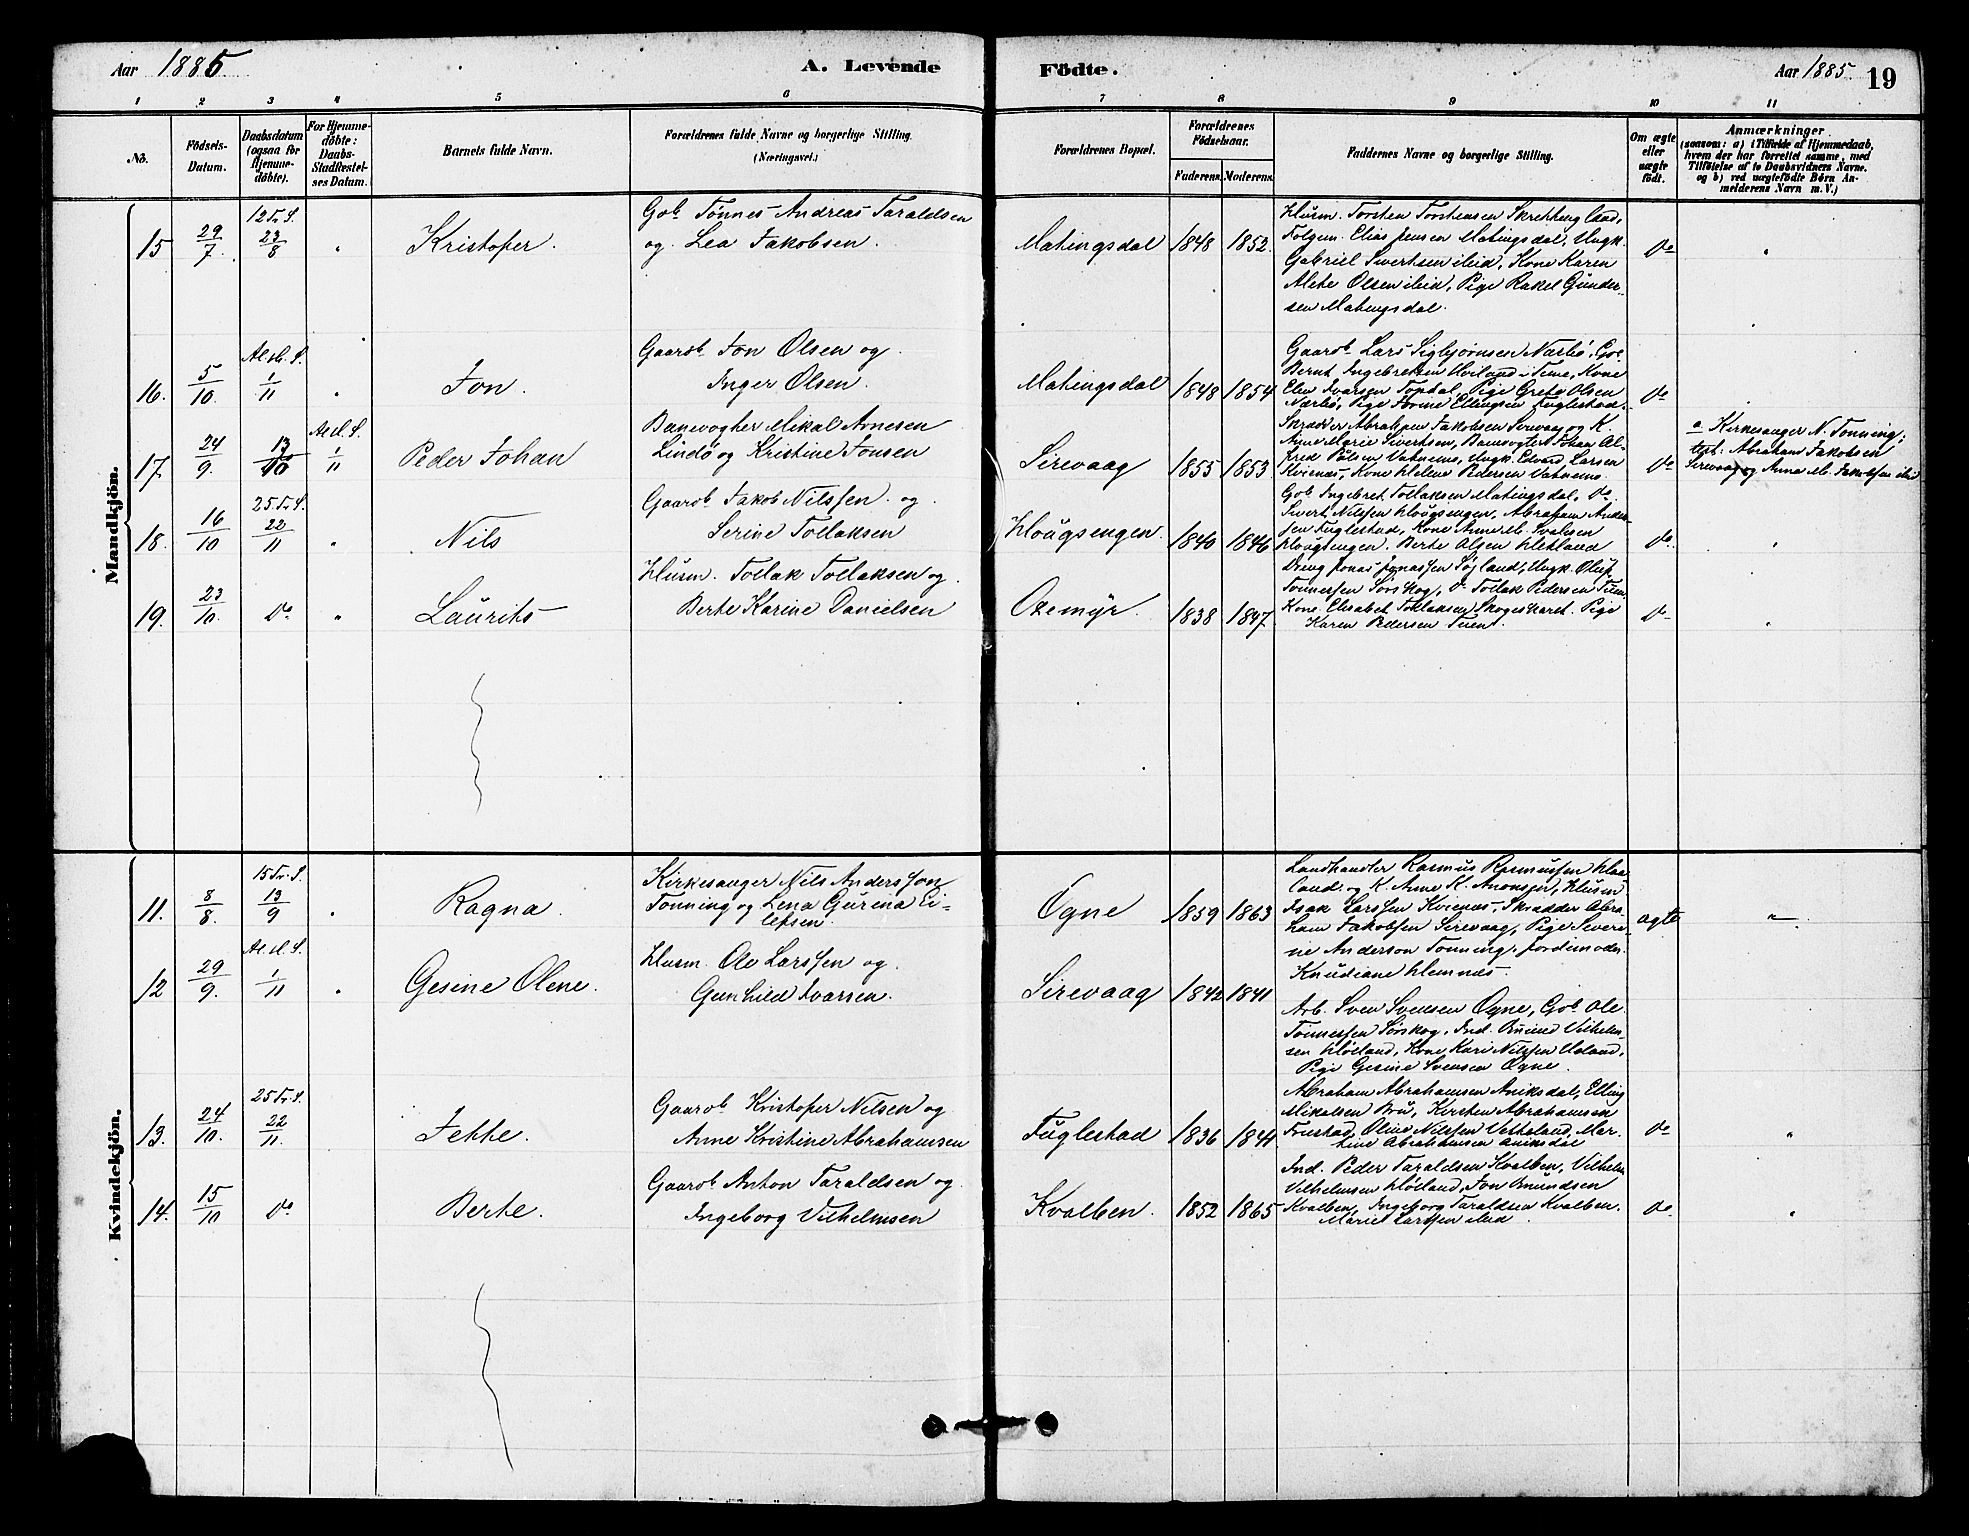 Aar 1885.
A. Levende
Födte.
Aar 1885
19
1 2 3 4 5 6 7 8 9 10 11
No.
Födsels-
Datum.
Daabsdatum
(ogsaa for
Hjemme-
döbte).
For Hjemme-
döbte:
Daabs-
Stadfæstel-
ses Datum.
Barnets fulde Navn.
Forældrenes fulde Navne og borgerlige Stilling.
(Næringsvei.)
Forældrenes Bopæl.
Forældrenes
Födselsaar.
Faderens. Moderens.
Faddernes Navne og borgerlige Stilling.
Om ægte
eller
uægte
födt.
Anmærkninger
(saasom: a) i Tilfælde af Hjemmedaab,
hvem der har forrettet samme, med
Tilföielse af to Daabsvidners Navne.
og b) ved uægtefödte Börn An-
melderens Navn m. V.)
Mandkjön.
15 29/7 12 Tr. S. 23/8 " Kristofer.
Gbr. Tönnes Andreas Taraldsen
og Lea Jakobsen.
Matingsdal 1848 1852.
Husm. Torsten Torstensen
Elias Jensen Matingsdal, Ungk.
Gabriel Sivertsen ibid, Kone Karen
Alete Olsen ibid, Pige Rakel Gunder-
sen Matingsdal.
Do "
16. 5/10. Al. H. S. 1/11 " Jon.
Gaarbr. Jon Olsen og
Inger Olsen.
Matingsdal 1848 1854
Gaarbr. Lars Sigbjørnsen Nærbö, Gbr.
Bernt Ingebretsen i Time, Kone
Elen Ivarsen Pige Grete Olsen
Nærbö, Pige Ellingsen Fuglestad.
Do
17. 24/9. 13/10 Al. H. S. 1/11 Peder Johan
Banevogter Mikal Arnesen
Lindö og Kristine Jonsen
Sirevaag 1855 1853
Skrædder Abraham Jakobsen Sirevaag og K.
Anne Marie Sivertsen, Banevogter Johan Al-
fred Vatnemo, Ungk. Edvard Larsen
Kvienes, Kone Helene Pedersen Vatnemo.
Do
a Kirkesanger N. Tonning;
test. Abraham Jakobsen
Sirevaag og Anna M. Jakobsen ibid
18. 16/10 25. Tr. S. 22/11 " Nils
Gaarbr. Jakob Nilssen og
Serine Tollaksen
Hougsengen. 1840 1846
Gbr. Ingebret Tollaksen Matingsdal, Do
Sivert Nilssen Hougsengen, Abraham Ander-
sen Fuglestad, Kone Anne M. Svalesen
Hougsengen. Berte Olsen Hetland
Do "
19. 23/10. Do " Laurits
Husm. Tollak Tollaksen og
Berte Karine Danielsen
Oxemyr. 1838 1847.
Dreng Jonas Jonassen Ungk. Oluf
Tonnessen Sörskog, Do Tollak Pedersen Tuen,
Kone Elisabet Tollaksen Skogeskaret. Pige
Karen Pedersen Tuen.
Do "
Kvindekjön.
11. 8/8. 15 Tr. S. 13/9 " Ragna.
Kirkesanger Nils Anderssen
Tonning og Lena Gurina Ei-
lefsen.
Ogne 1859 1863
Landhandler Rasmus Rasmussen Haa-
land og K. Anne K. Aronsen, Husm.
Isak Larssen Kvienes, Skrædder Abra-
ham Jakobssen Sirevaag, Pige Severi-
ne Anderson Tonning, Jordemoder
Knudiane Hemnæs.
ægte "
12 29/9. Al. H. S. 1/11 " Gesine Olene.
Husm. Ole Larssen og
Gunhild Ivarsen.
Sirevaag 1842 1841
Arb. Sven Svensen Ogne, Gbr. Ole
Tönnessen Sörskog, Ind. Omund Vilhelm-
sen Höiland, Kone Kari Nilssen
Pige Gesine Svensen Ogne.
13. 24/10. 25 Tr. S. 22/11. Jekke.
Gaarbr. Kristofer Nilsen og
Anne Kristine Abrahamsen
Fuglestad 1836 1844
Abraham Abrahamsen Aniksdal, Elling
Mikalsen Bru, Kirsten Abrahamsen
Frustad, Oline Nilssen Vetteland, Mar-
tine Abrahamsen Aniksdal
Do "
14. 15/10 Do Berte.
Gaarbr. Anton Taraldsen og
Ingeborg Vilhelmsen
Kvalben. 1852 1865
Ind. Peder Taraldsen Kvalben, Vilhelm
Vilhelmsen Höiland, Jon Omundsen
Kvalben, Ingeborg Taraldsen Kvalben.
Marie Larssen ibid.
Do "